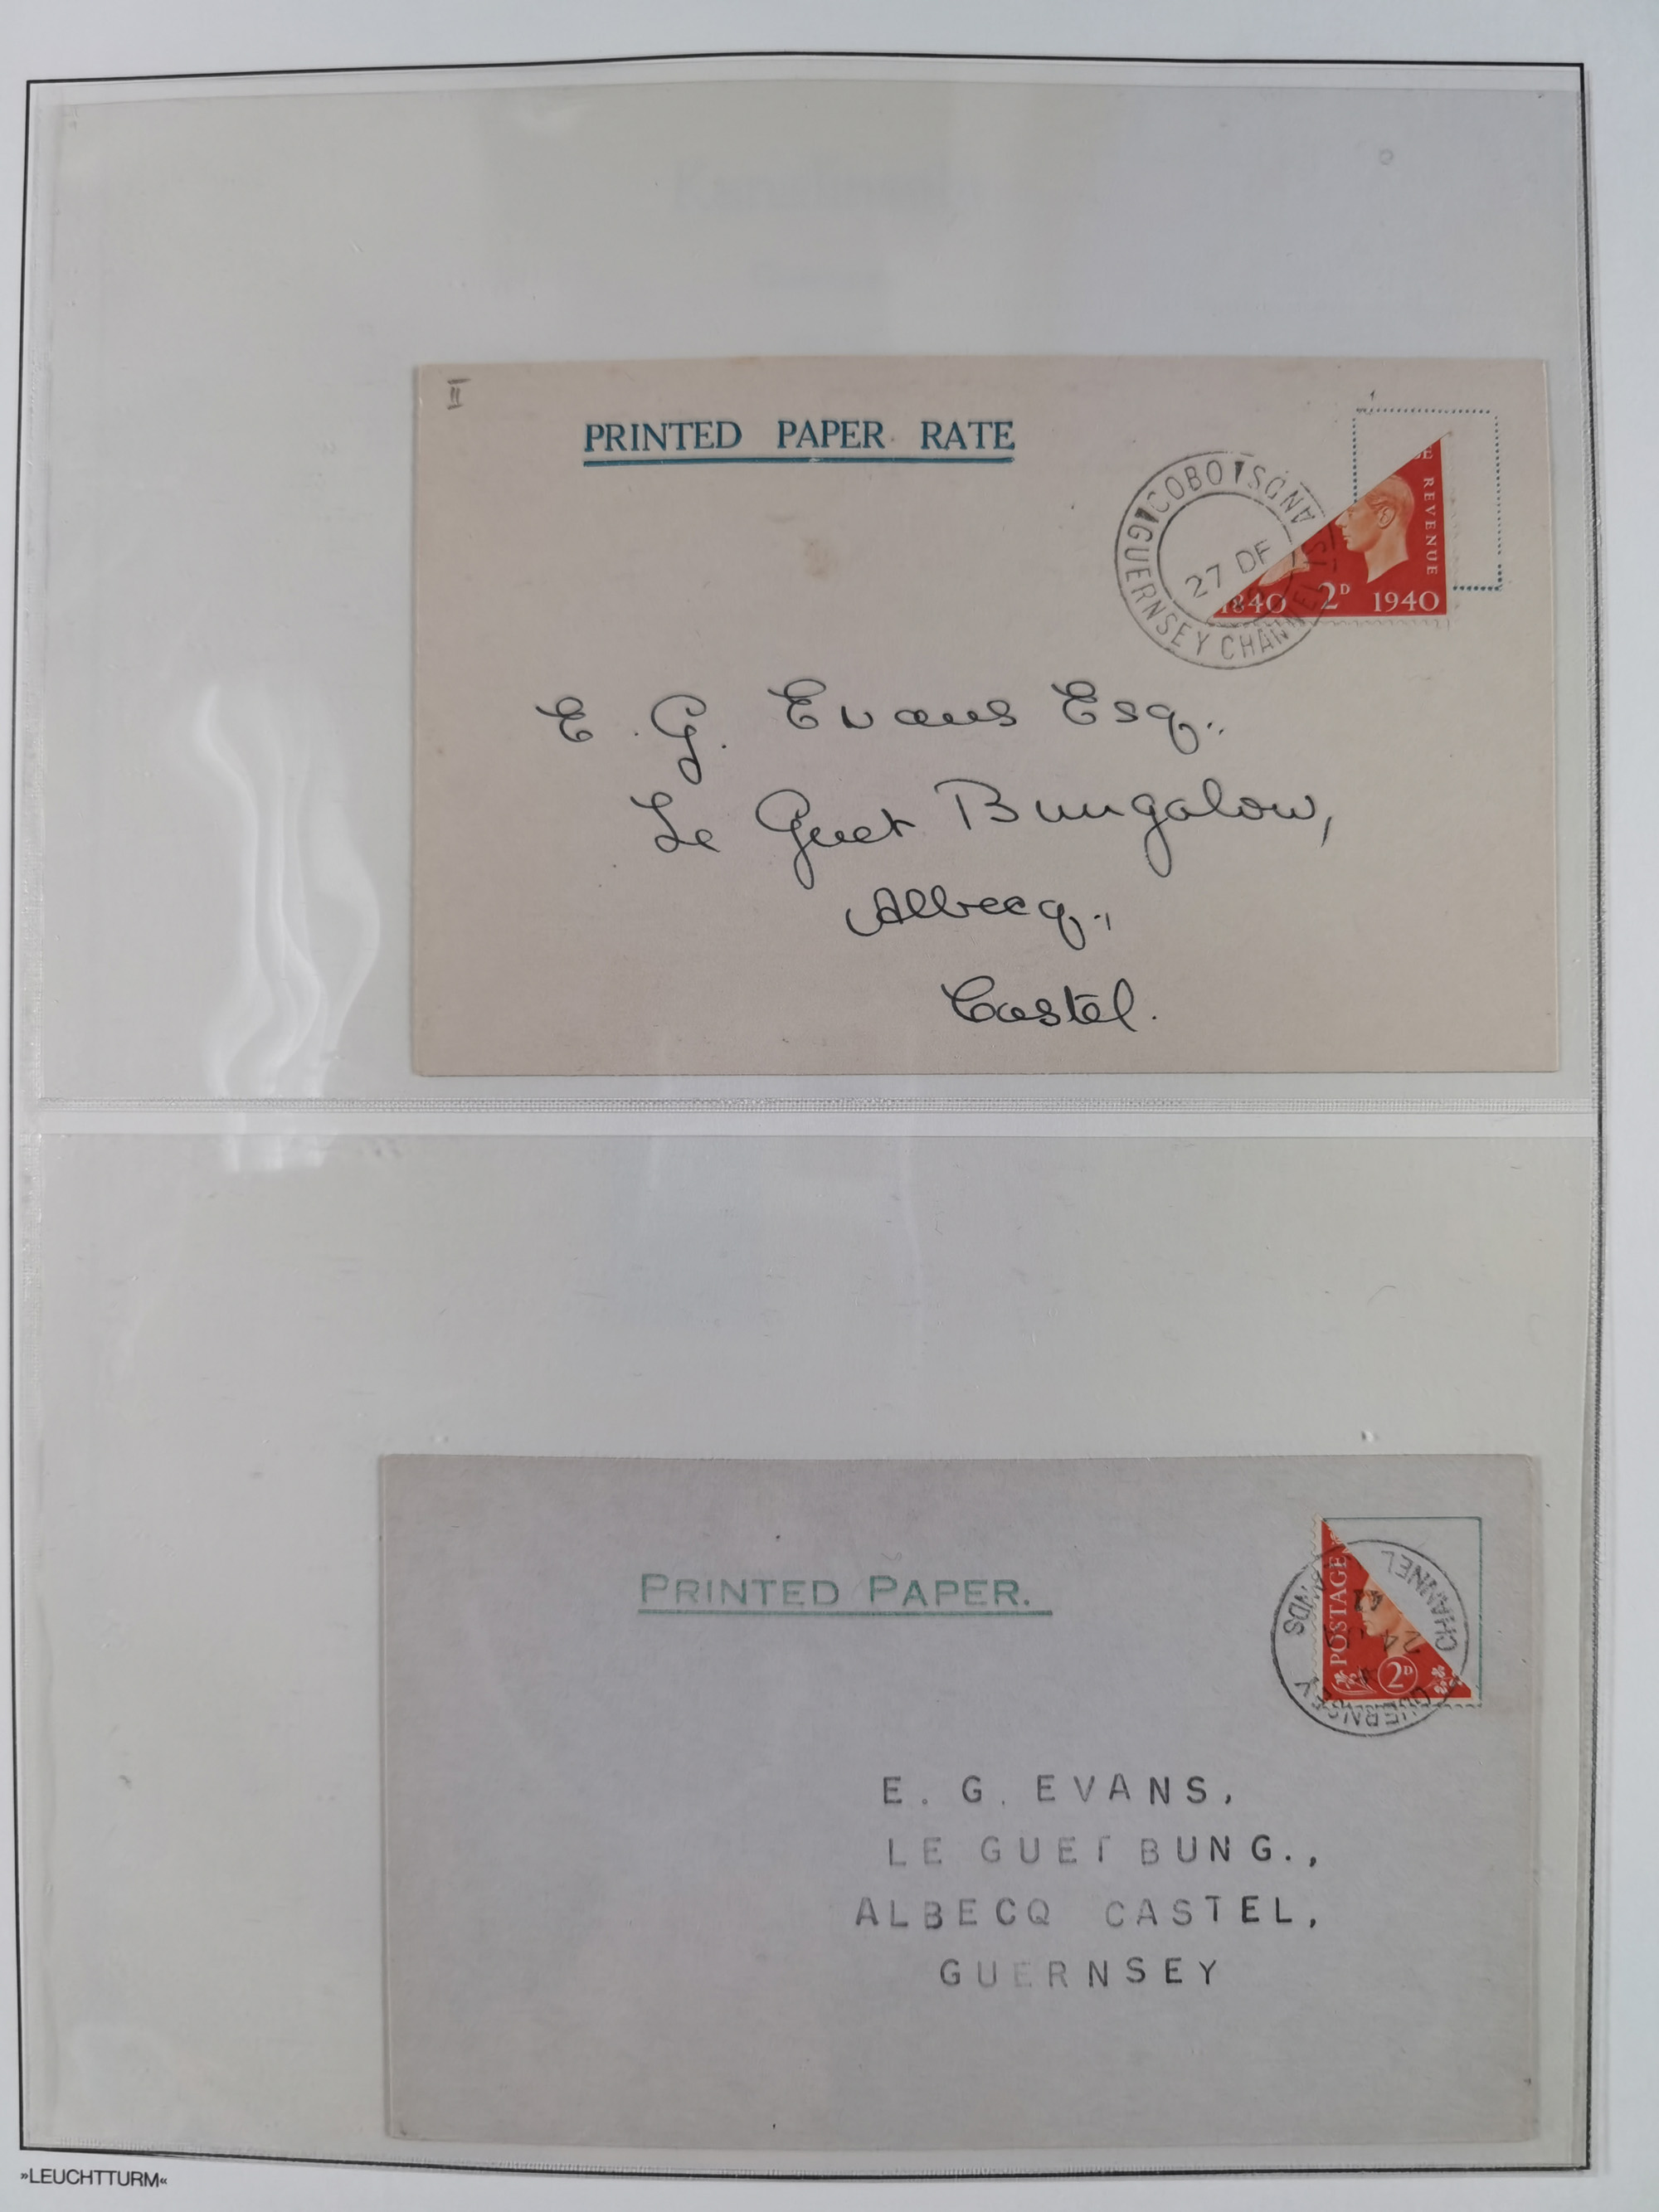 II
PRINTED PAPER RATE
COBO
GUERNSEY CHANNEL ISLANDS
27 DE
REVENUE
1840 2D 1940
E. G. Evans Esq.,
Le Guet Bungalow,
Albecq.,
Castel.
PRINTED PAPER.
GUERNSEY CHANNEL
POSTAGE
2D
E. G. EVANS,
LE GUET BUNG.,
ALBECQ CASTEL,
GUERNSEY
»LEUCHTTURM«